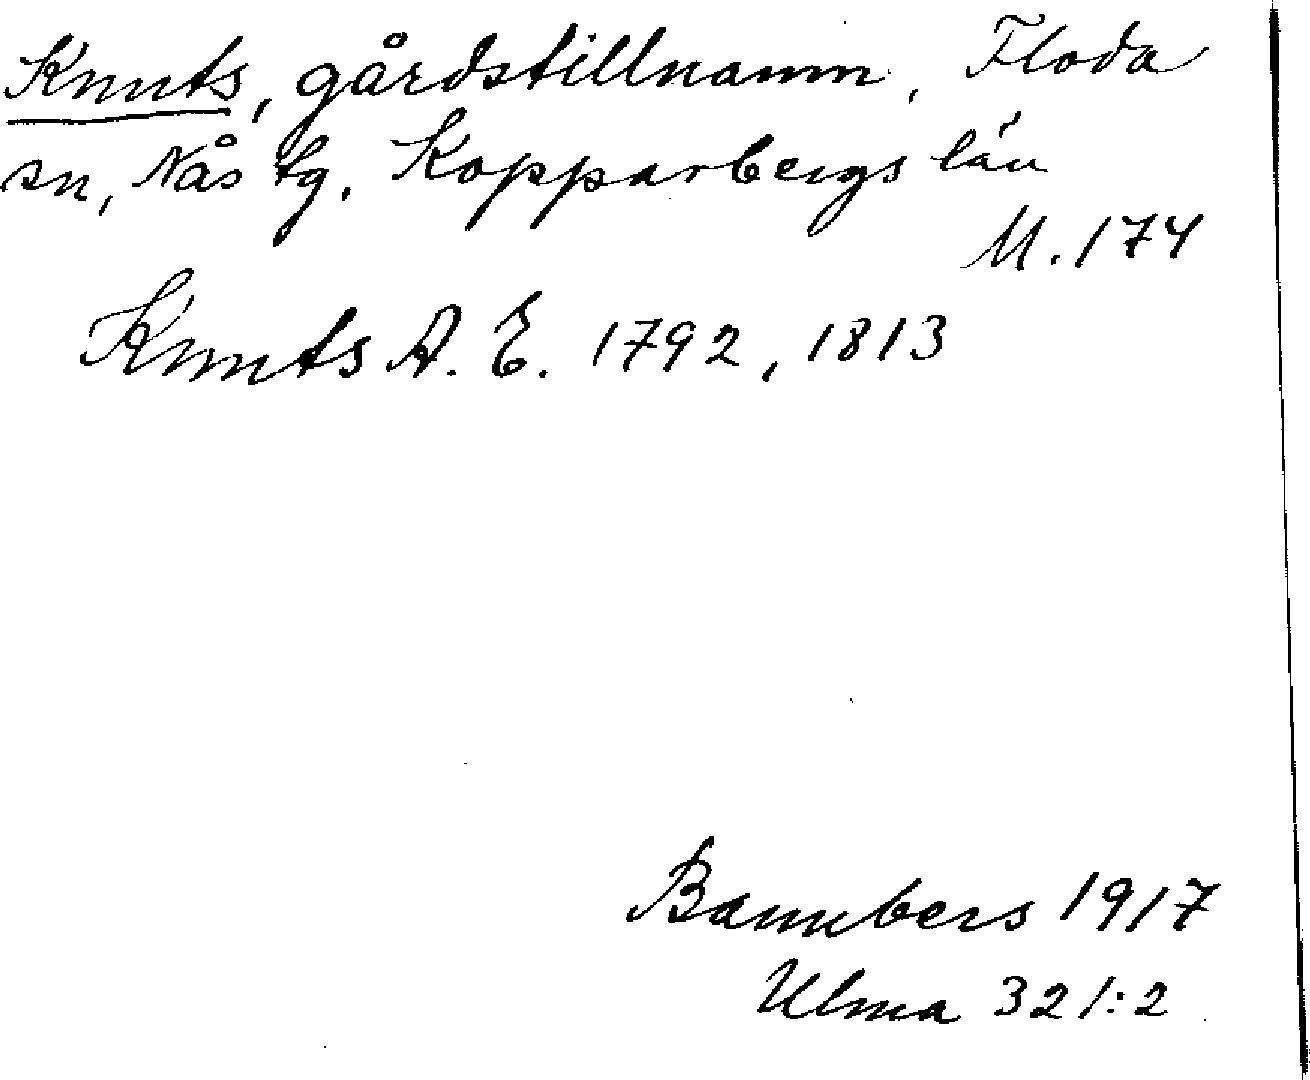 Knuts, gårdstillnamn, Floda
sn, Nås tg. Kopparbergs län
M. 174
Knuts A. E. 1792, 1813
Bannbers 1917
Ulma 321:2